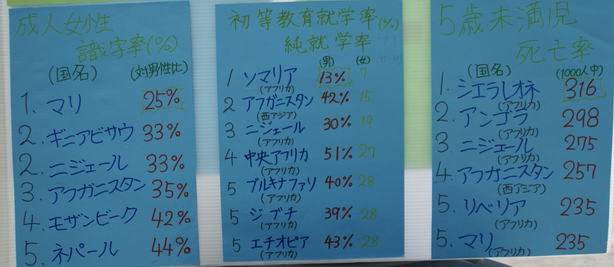 成人女性
識字率(%)
(国名) (対男性比)
1. マリ 25%
2. ギニアビサウ 33%
2. ニジェール 33%
3. アフガニスタン 35%
4. モザンビーク 42%
5. ネパール 44%
初等教育就学率(%)
純就学率
(男) (女)
1 ソマリア 13% 7
(アフリカ)
2 アフガニスタン 42% 15
(西アジア)
3 ニジェール 30% 19
(アフリカ)
4 中央アフリカ 51% 27
(アフリカ)
5 ブルキナファソ 40% 28
(アフリカ)
5 ジブチ 39% 28
(アフリカ)
5 エチオピア 43% 28
(アフリカ)
5歳未満児
死亡率
(国名) (1000人中)
1. シエラレオネ 316
(アフリカ)
2. アンゴラ 298
(アフリカ)
3. ニジェール 275
(アフリカ)
4. アフガニスタン 257
(西アジア)
5. リベリア 235
(アフリカ)
5. マリ 235
(アフリカ)